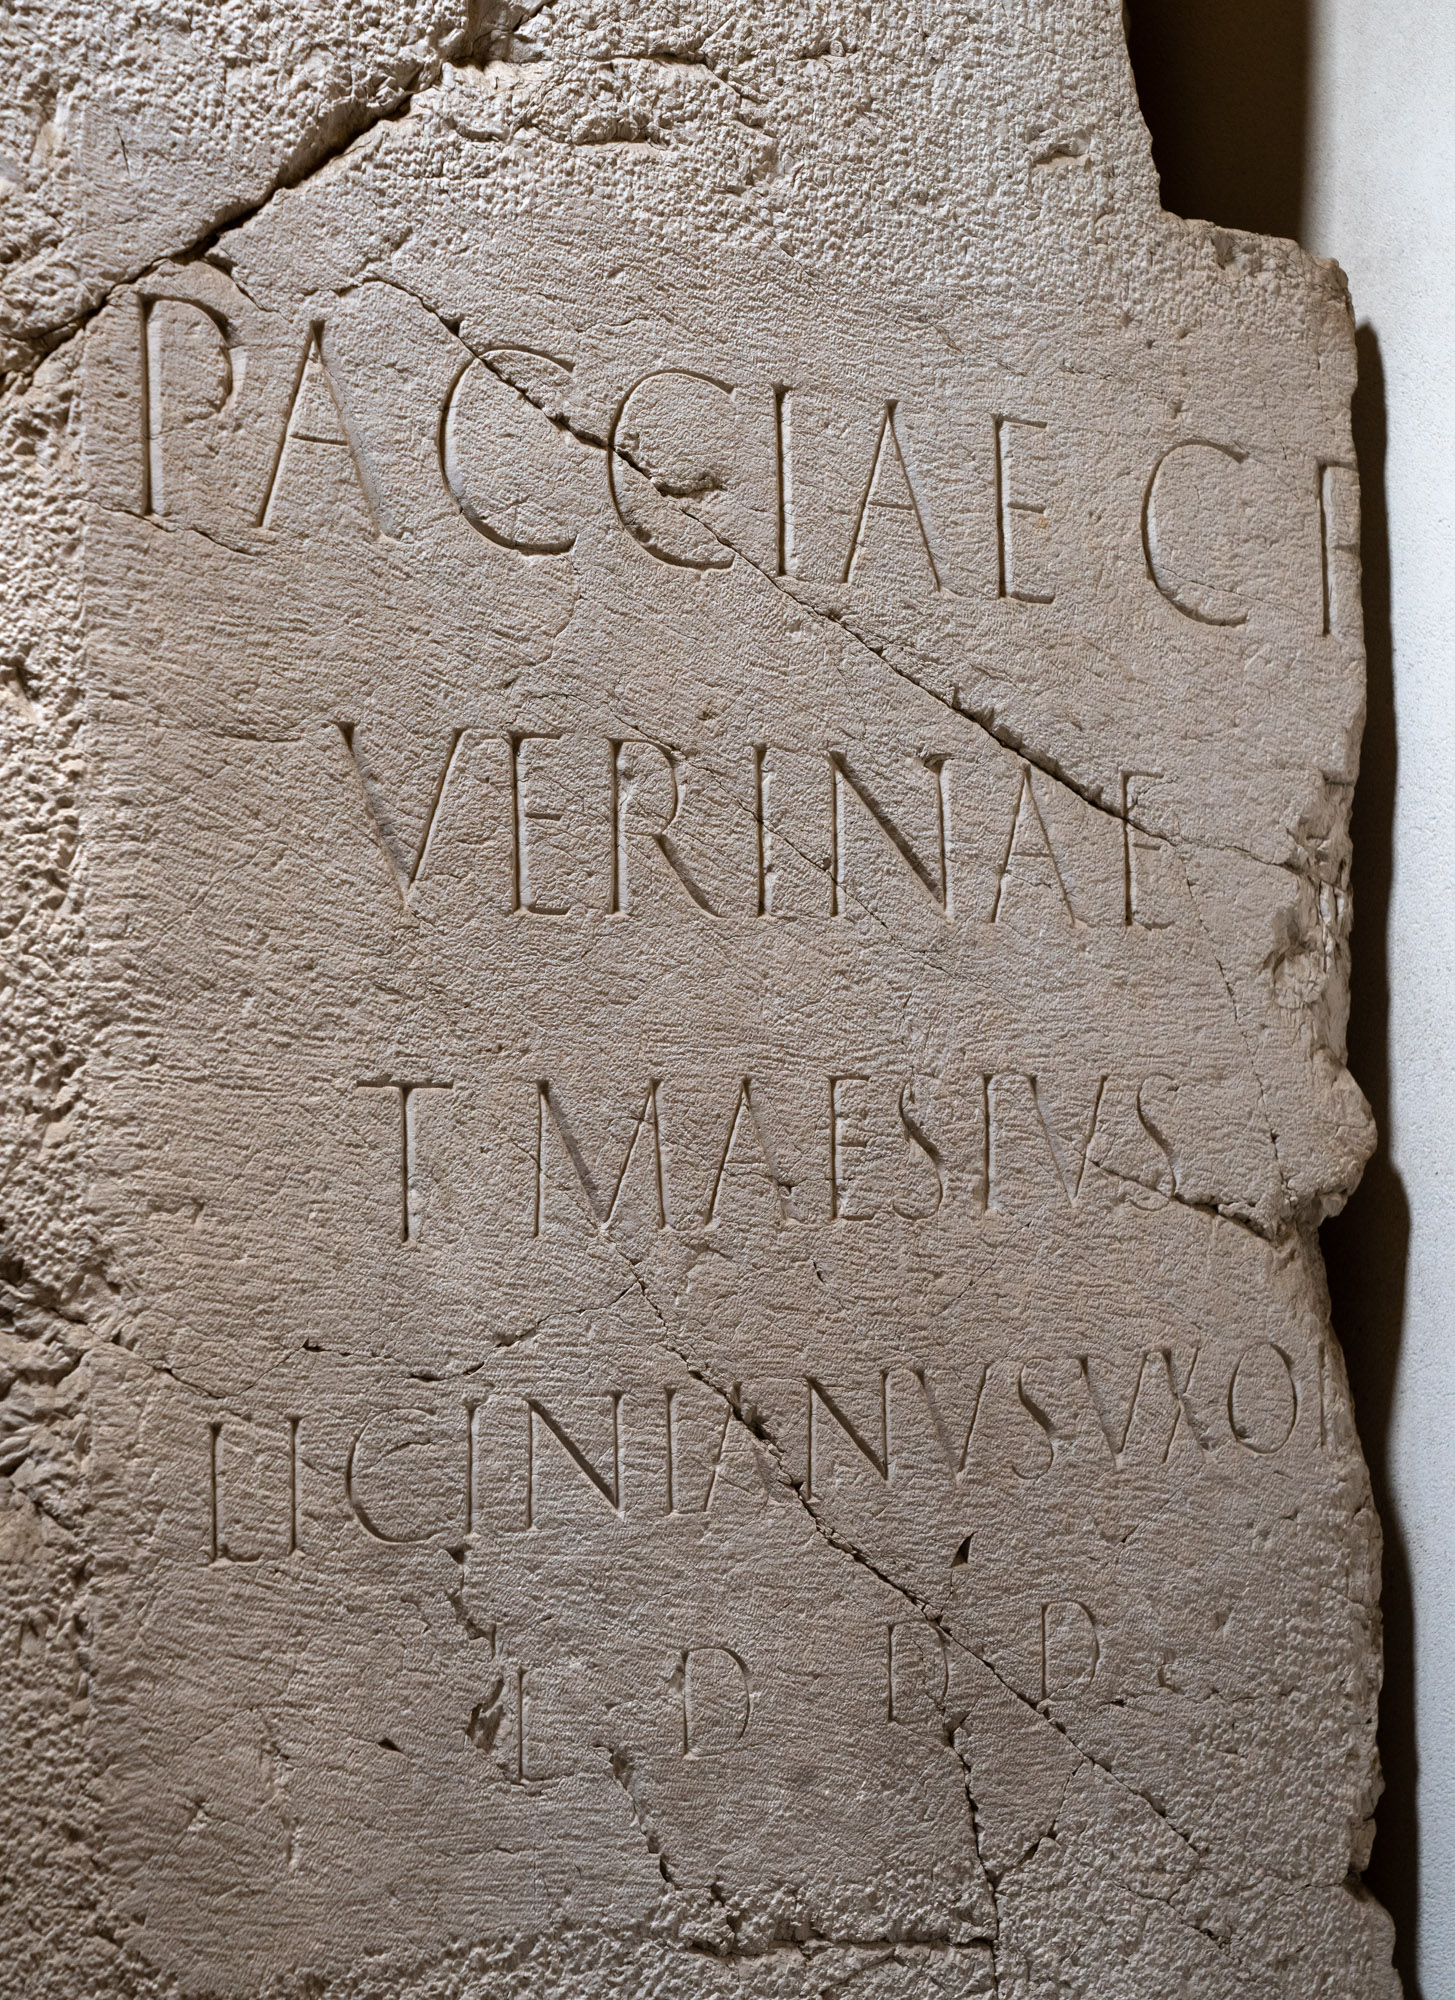 PACCIAE C F
VERINAE
T MAESIUS
LICINIANUS UXORI
L D D D